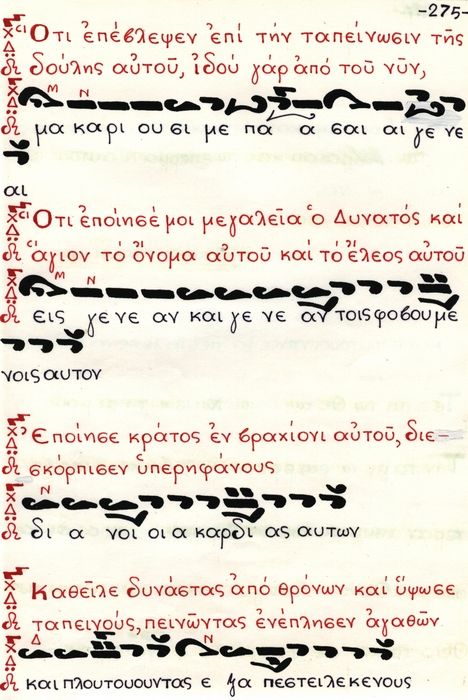 -275-
Ὅτι ἐπέβλεψεν ἐπί τήν ταπείνωσιν τῆς
δούλης αὐτοῦ, ἰδού γάρ ἀπό τοῦ νῦν,
Μ Ν
μα κα ρι ου σι με πα α σαι αι γε νε
αι
Ὅτι ἐποίησέ μοι μεγαλεῖα ὁ Δυνατός καί
ἅγιον τό ὄνομα αὐτοῦ καί τό ἔλεος αὐτοῦ
Μ Ν
εις γε νε αν και γε νε αν τοις φοβου με
νοις αυτον
Ἐποίησε κράτος ἐν βραχίονι αὐτοῦ, διε-
σκόρπισεν ὑπερηφάνους
Ν
δι α νοι οι α καρδι ας αυτων
Καθεῖλε δυνάστας ἀπό θρόνων καί ὕψωσε
ταπεινούς, πεινῶντας ἐνέπλησεν ἀγαθῶν.
Δ Ν
και πλουτουουντας ε ξα πεστειλε κενους